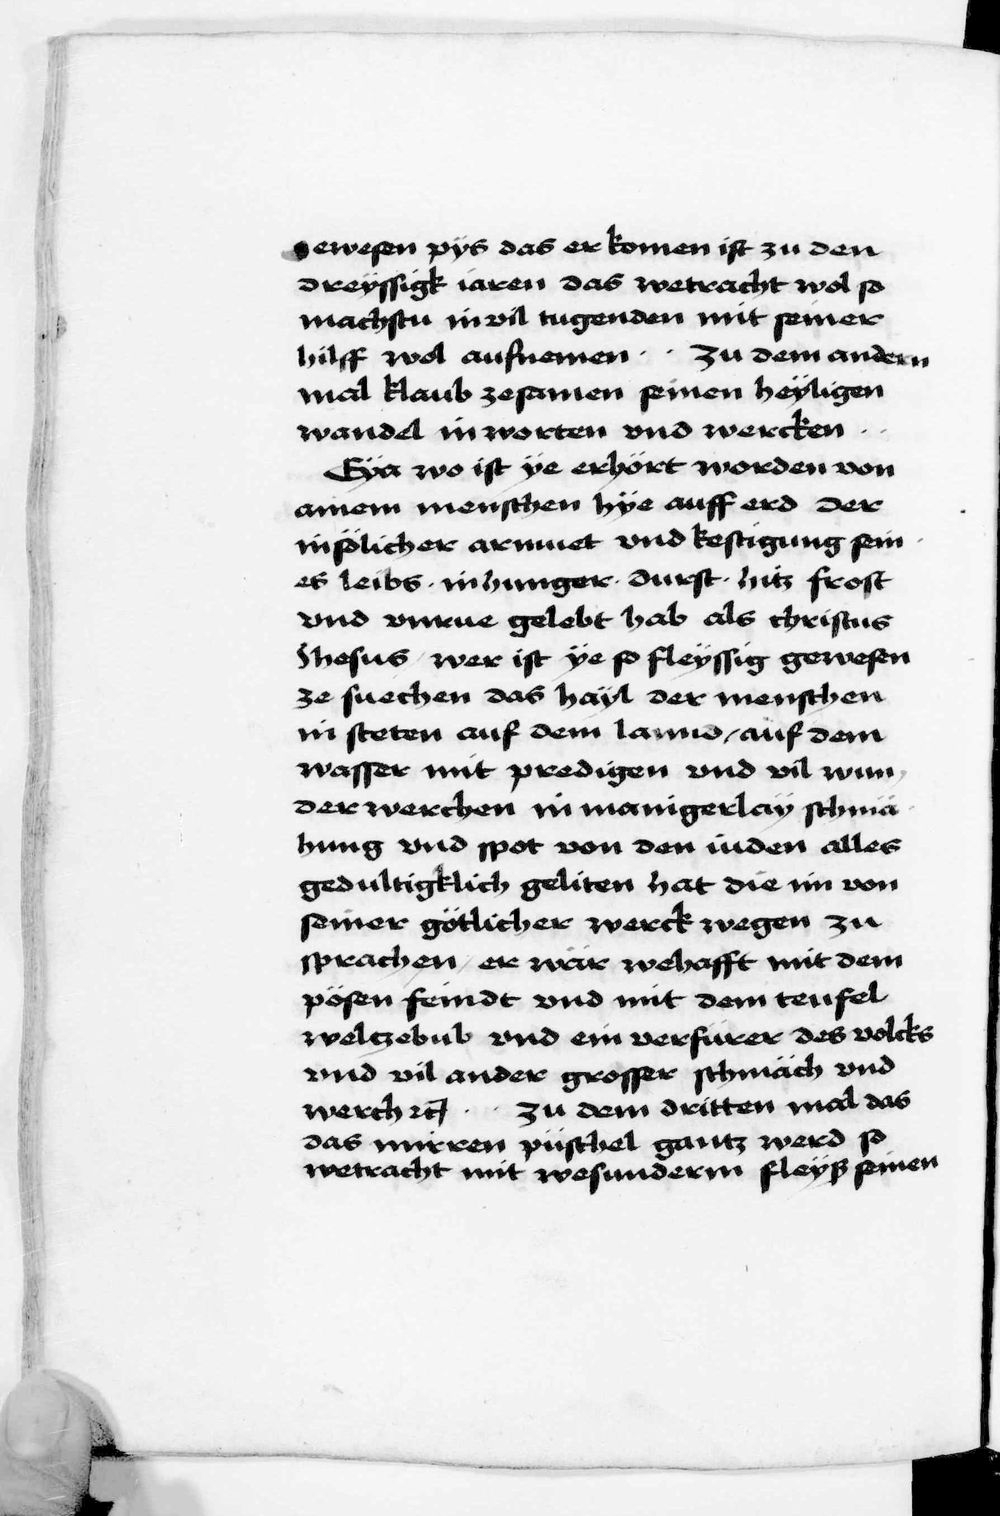 gewesen pÿs das er komen ist zu den
dreÿssigk iaren das wetracht wol so
machstu in vil tugenden mit seiner
hilff wol aufnemen · · Zu dem andern
mal klaub zesamen seinen heÿligen
wandel in worten vnd wercken · ·
Eÿa wo ist ÿe erhört worden von
ainem menschen hÿe auff erd der
in sölicher armuet vnd kestigung sein ·
es leibs · in hunger · durst · hitz frost
vnd vnrue gelebt hab als christus
Jhesus / wer ist ÿe so fleÿssig gewesen
ze suechen das haÿl der menschen
in steten auf dem lannd / auf dem
wasser mit predigen vnd vil wun,
der werchen in manigerlaÿ schmä ·
hung vnd spot von den iuden alles
gedultigklich geliten hat die im von
seiner götlicher werck wegen zu
sprachen / er wär wehafft mit dem
pösen feindt vnd mit dem teufel
weltzebub vnd ein verfürer des volcks
vnd vil ander grosser schmäch vnd
werch ꝛc · · Zu dem dritten mal das
das mirren püschel gantz werd so
wetracht mit wesunderm fleÿß seinen